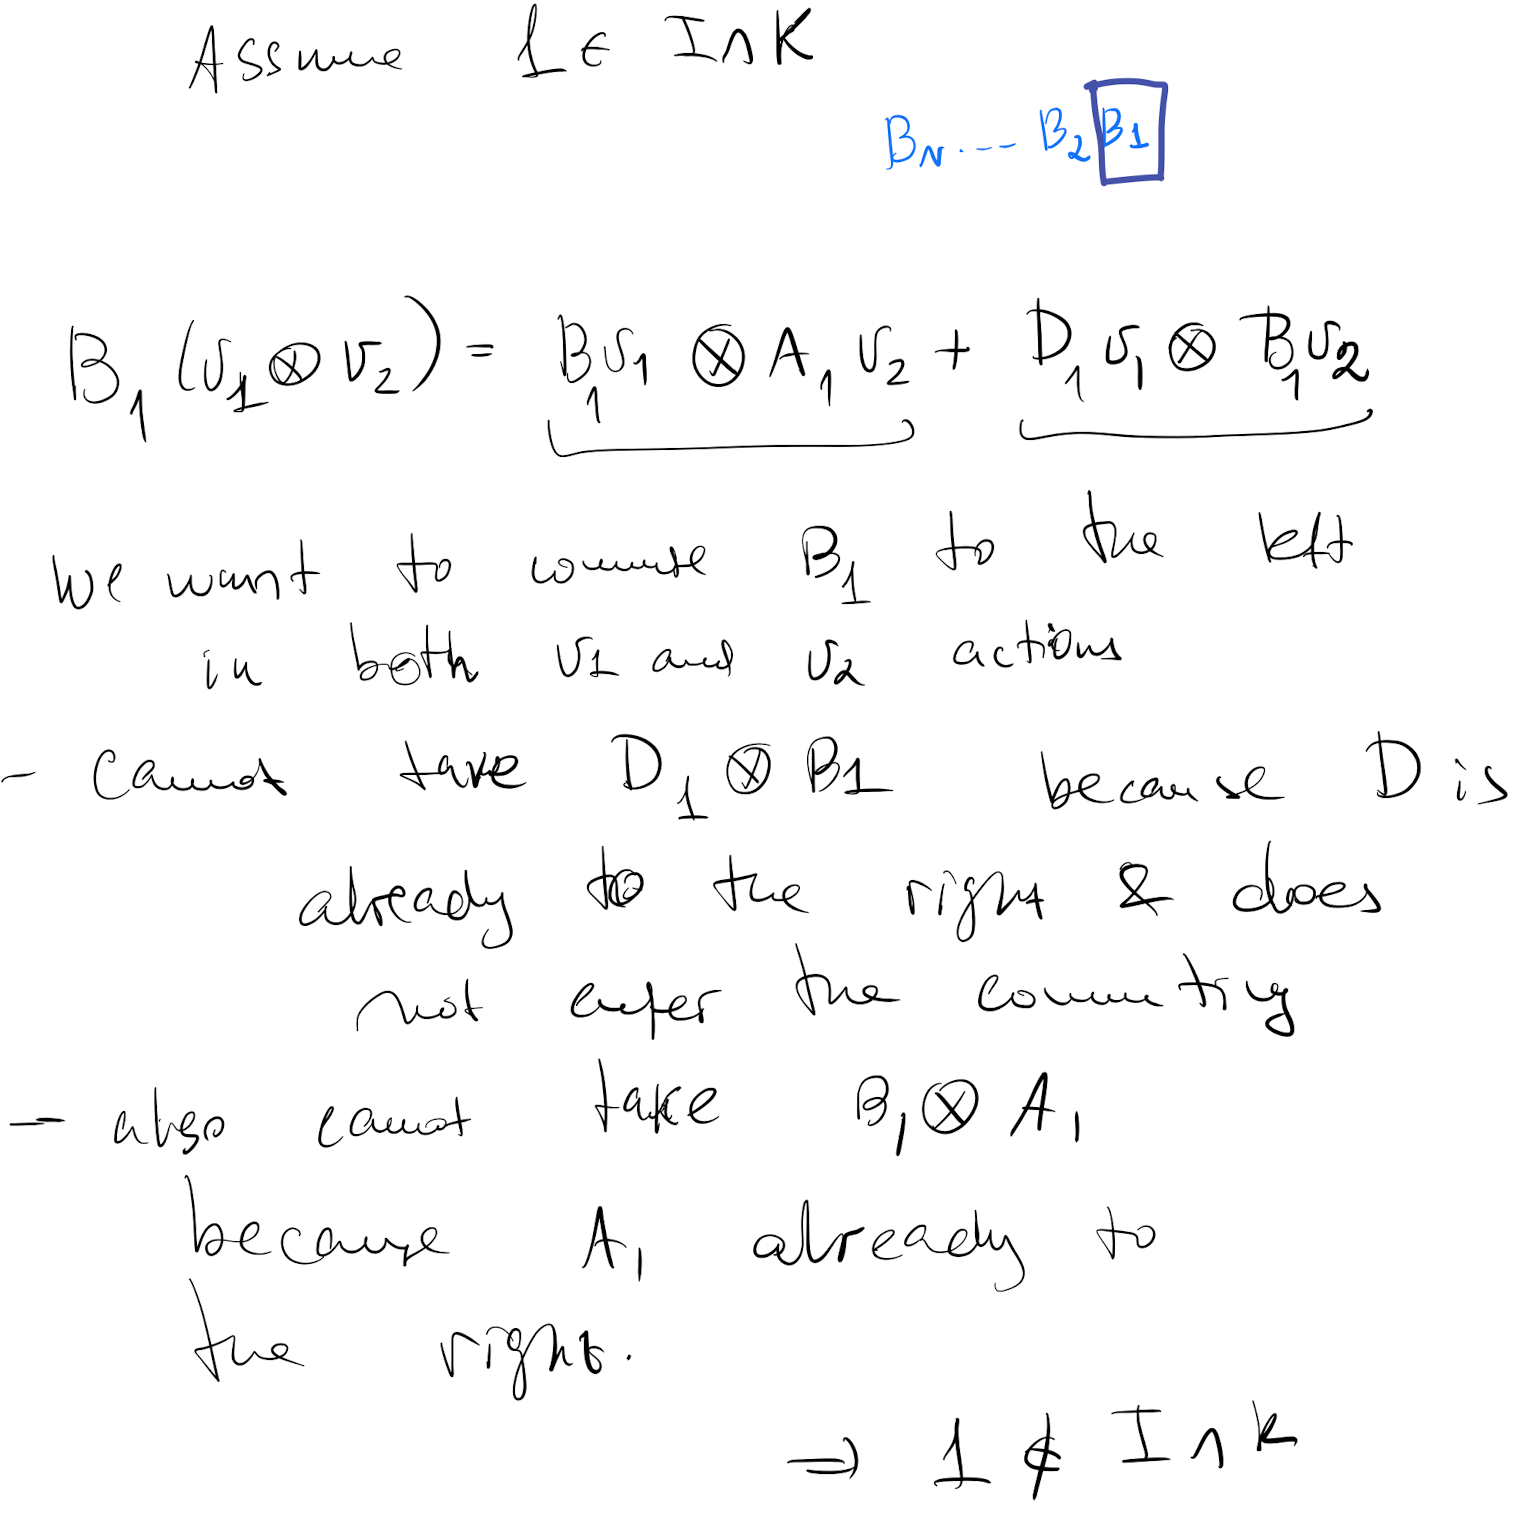 Assume 1 ∈ I∩K
B_N ... B_2 B_1
B_1 (v_1 ⊗ v_2) = B_1 v_1 ⊗ A_1 v_2 + D_1 v_1 ⊗ B_1 v_2
We want to commute B_1 to the left
in both v_1 and v_2 actions
- cannot take D_1 ⊗ B_1 because D is
already to the right & does
not enter the commuting
- also cannot take B_1 ⊗ A_1
because A_1 already to
the right.
⇒ 1 ∉ I∩K